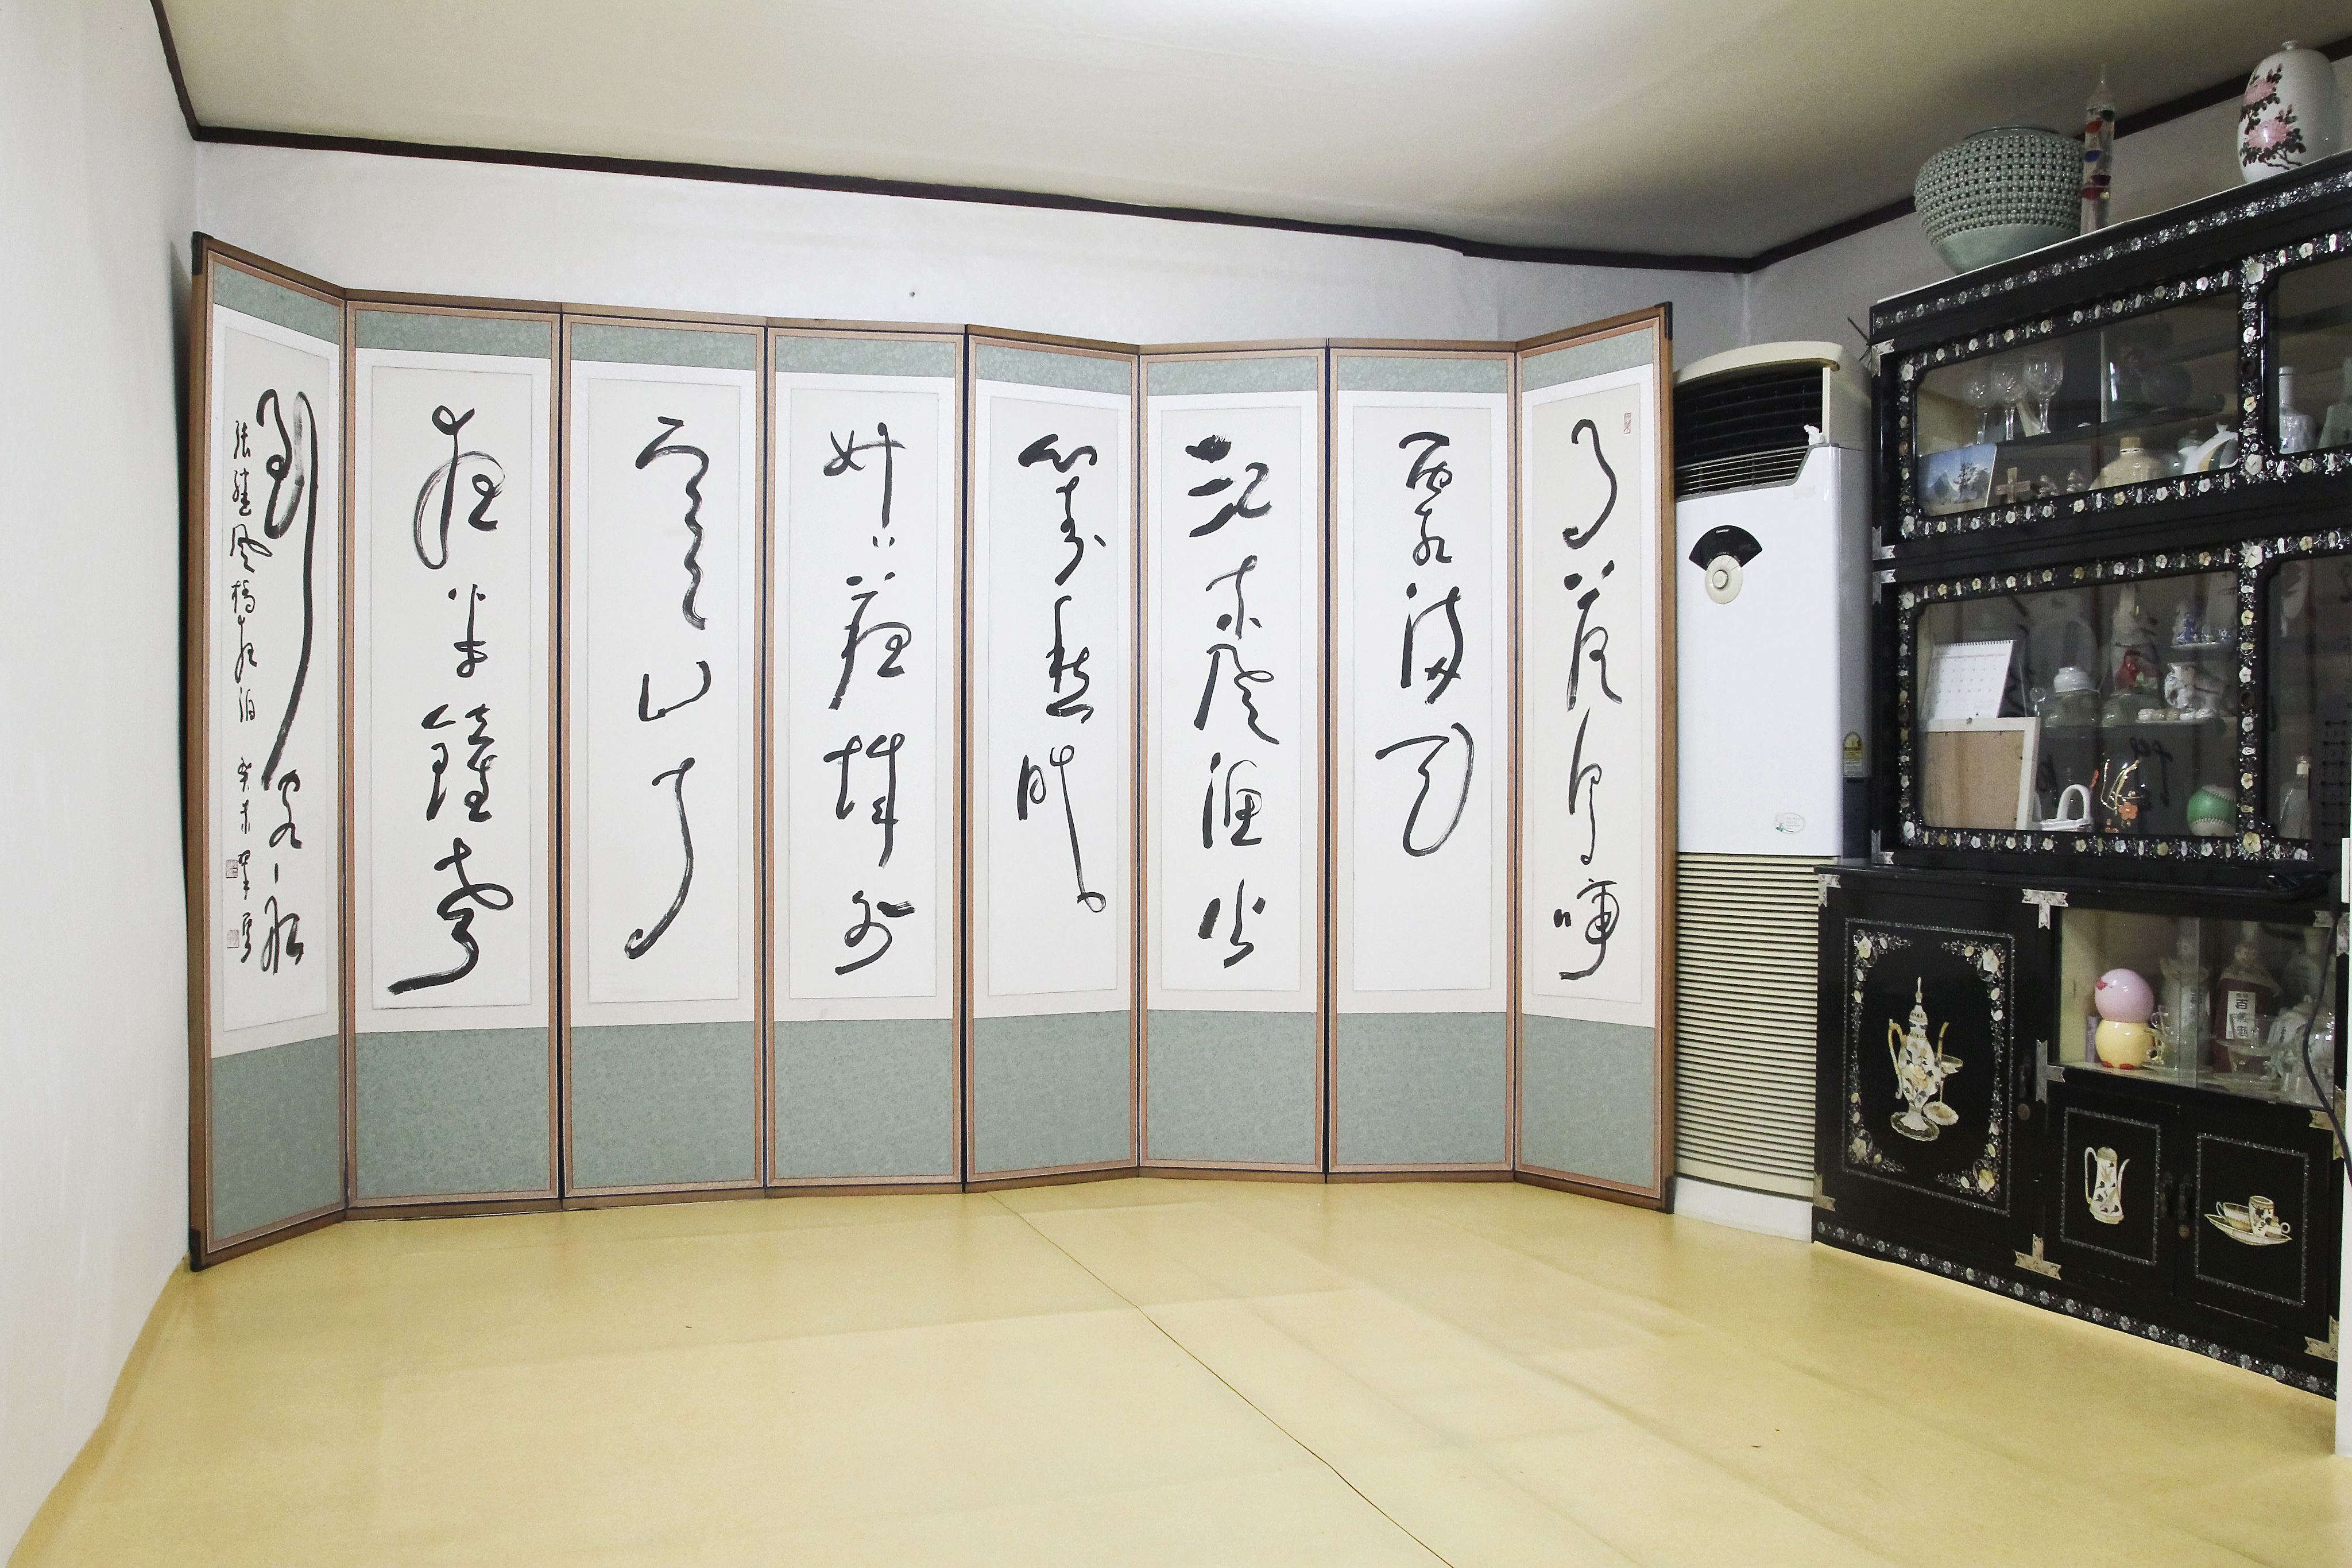 月落烏啼
霜滿天
江楓漁火
對愁眠
姑蘇城外
寒山寺
夜半鐘聲
到客船
張繼楓橋夜泊 癸未